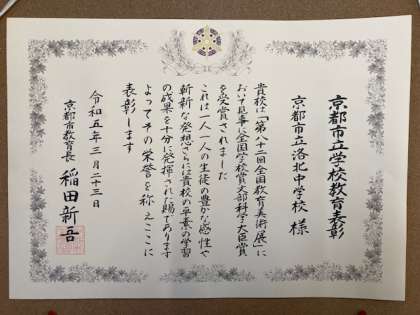 京都市立学校教育表彰
京都市立洛北中学校 様
貴校は「第八十二回全国教育美術展」に
おいて見事に全国学校賞文部科学大臣賞
を受賞されました
これは一人一人の生徒の豊かな感性や
斬新な発想さらには貴校の平素の学習
の成果を十分に発揮された賜であります
よってその栄誉を称えここに
表彰します
令和五年三月二十三日
京都市教育長 稲田新吾